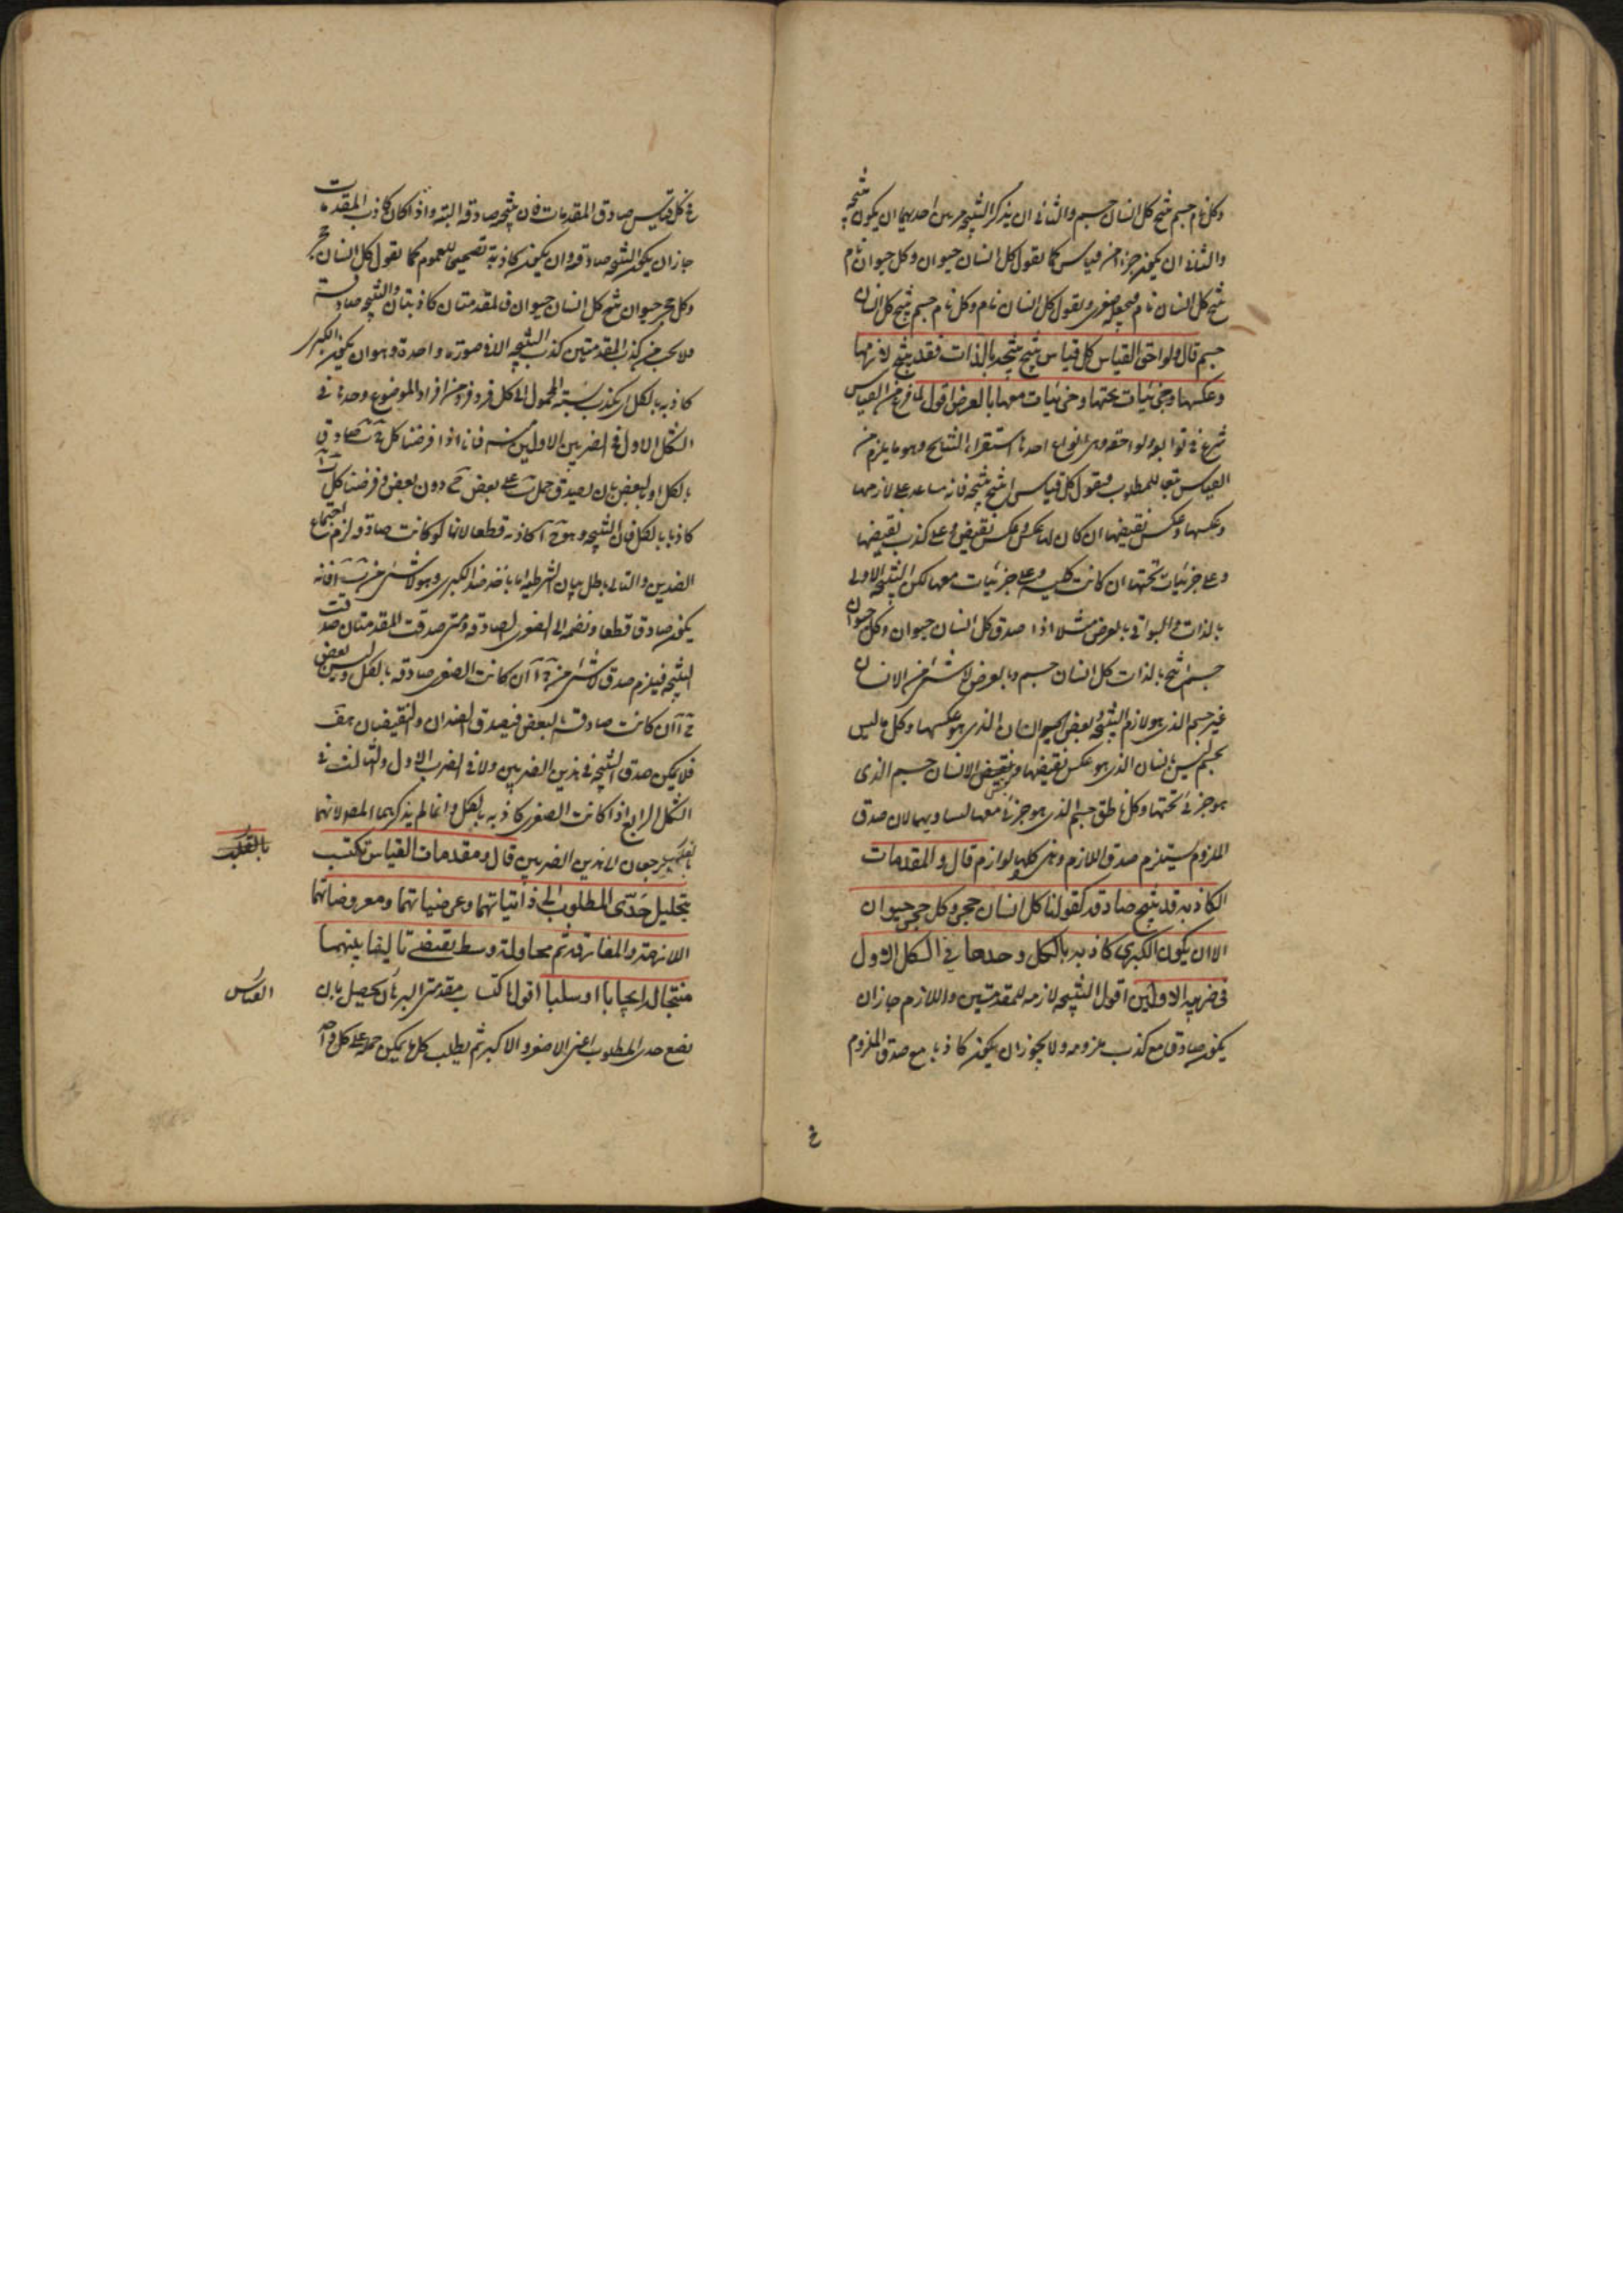 وكل نام جسم ينتج كل انسان جسم والثاني ان يذكر النتيجة مرتين احديهما ان يكون نتيجة
والثاني ان يكون جزءا من قياس كما نقول كل انسان حيوان وكل حيوان نام
ينتج كل انسان نام فنجعله صغرى ونقول كل انسان نام وكل نام جسم ينتج كل انسان
جسم قال ولواحق القياس كل قياس ينتج نتيجة بالذات فقد ينتج لازمها
وعكسها وجزئيات تحتها وجزئيات معها بالعرض اقول لما فرغ من القياس
شرع في توابعه ولواحقه وهي انواع احدها استقراء النتايج وهو ما يلزم من
القياس تبعا للمطلوب فنقول كل قياس انتج نتيجة فانه على لازمها
وعكسها وعكس نقيضها ان كان لها عكس وعكس نقيض وعلى كذب نقيضها
وعلى جزئيات تحتها ان كانت كلية وعلى جزئيات معها لكن النتيجة الاولى
بالذات والبواقي بالعرض مثلا اذا صدق كل انسان حيوان وكل حيوان
جسم انتج بالذات كل انسان جسم وبالعرض لا شيء من الانسان
غير جسم الذي هو لازم النتيجة وبعض الجسم انسان الذي هو عكسها وكل ما ليس
بجسم ليس بانسان الذي هو عكس نقيضها وبعض الانسان جسم الذي
هو جزئي تحتها وكل ناطق جسم الذي هو جزئي معها لتساويهما لان صدق
الملزوم يستلزم صدق اللازم وهي كلها لوازم قال والمقدمات
الكاذبة قد ينتج صادقة كقولنا كل انسان حجر وكل حجر حيوان
الا ان يكون الكبرى كاذبة بالكل وحدها في الشكل الاول
في ضربيه الاولين اقول النتيجة لازمة للمقدمتين واللازم جاز ان
يكون صادقا مع كذب ملزومه ولا يجوز ان يكون كاذبا مع صدق الملزوم
في كل قياس صادق المقدمات فان نتيجته صادقة البتة واذا كان كاذب المقدمات
جاز ان يكون النتيجة صادقة وان يكون كاذبة تصحيحا للعموم كما نقول كل انسان حجر
وكل حجر حيوان ينتج كل انسان حيوان فالمقدمتان كاذبتان والنتيجة صادقة
فلا يجب من كذب المقدمتين كذب النتيجة الا في صورة واحدة وهو ان يكون الكبرى
كاذبة بالكل اي يكذب نسبة المحمول الى كل فرد فرد من افراد الموضوع وحدها في
الشكل الاول في الضربين الاولين منه فانا اذا فرضنا كل صادق
بالكل او بالبعض بان يصدق حمل على بعض دون بعض وفرضنا كل
كاذبا بالكل فان النتيجة وهو كاذبة قطعا لانها لو كانت صادقة لزم اجتماع
الضدين والتالي باطل بيان الشرطية انا ناخذ ضد الكبرى وهو لا شيء من فانه
يكون صادقا قطعا ونضمه الى الصغرى الصادقة ومتى صدقت المقدمتان صدقت
النتيجة فيلزم صدق لا شيء من ان كانت الصغرى صادقة بالكل وليس بعض
ان كانت صادقة بالبعض فيصدق الضدان والنقيضان هف
فلا يمكن صدق النتيجة في هذين الضربين ولا في الضرب الاول والثالث في
الشكل الرابع اذا كانت الصغرى كاذبة بالكل وانما لم يذكرهما المص لانهما
يرجعان لهذين الضربين قال ومقدمات القياس تكتب
بتحليل حدي المطلوب الى ذاتياتهما وعرضياتهما ومعروضاتهما
اللازمة والمفارقة ثم محاولة وسط يقتضي تاليفا بينهما
منتجا له ايجابا او سلبا اقول اكتساب مقدمتي البرهان يحصل بان
نضع حدي المطلوب اعني الاصغر والاكبر ثم يطلب كل ما يمكن حمله على كل واحد
القياس